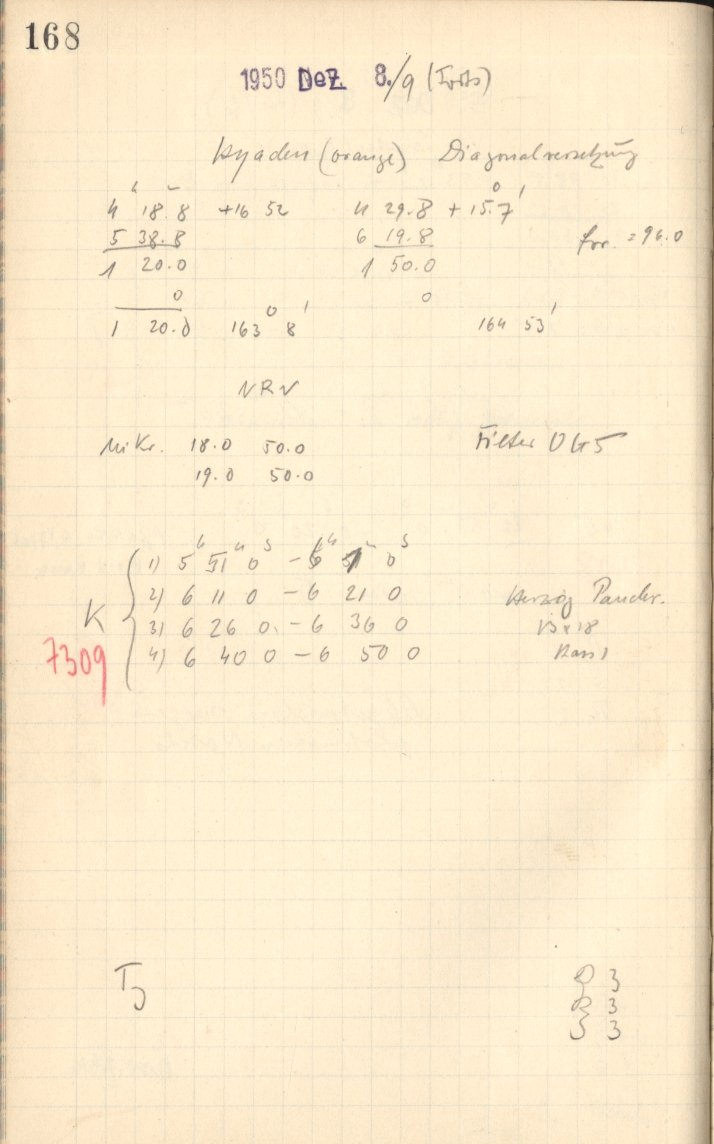 168
1950 Dez. 8./9 (Forts)
Hyaden (orange) Diagonalversetzung
h m
4 18.8 +16 52 4 29.8 +15° 7'
5 38.8 6 19.8 for. = 96.0
1 20.0 1 50.0
0 0
1 20.0 163° 8' 164 53'
NRN
Mikr. 18.0 50.0 Filter OG5
19.0 50.0
1) 5h 51m 0s - 6h m 0s
2) 6 11 0 - 6 21 0 Herzog Panchr.
K 3) 6 26 0 - 6 36 0 13x18
7309 4) 6 40 0 - 6 50 0
D 3
R 3
S 3